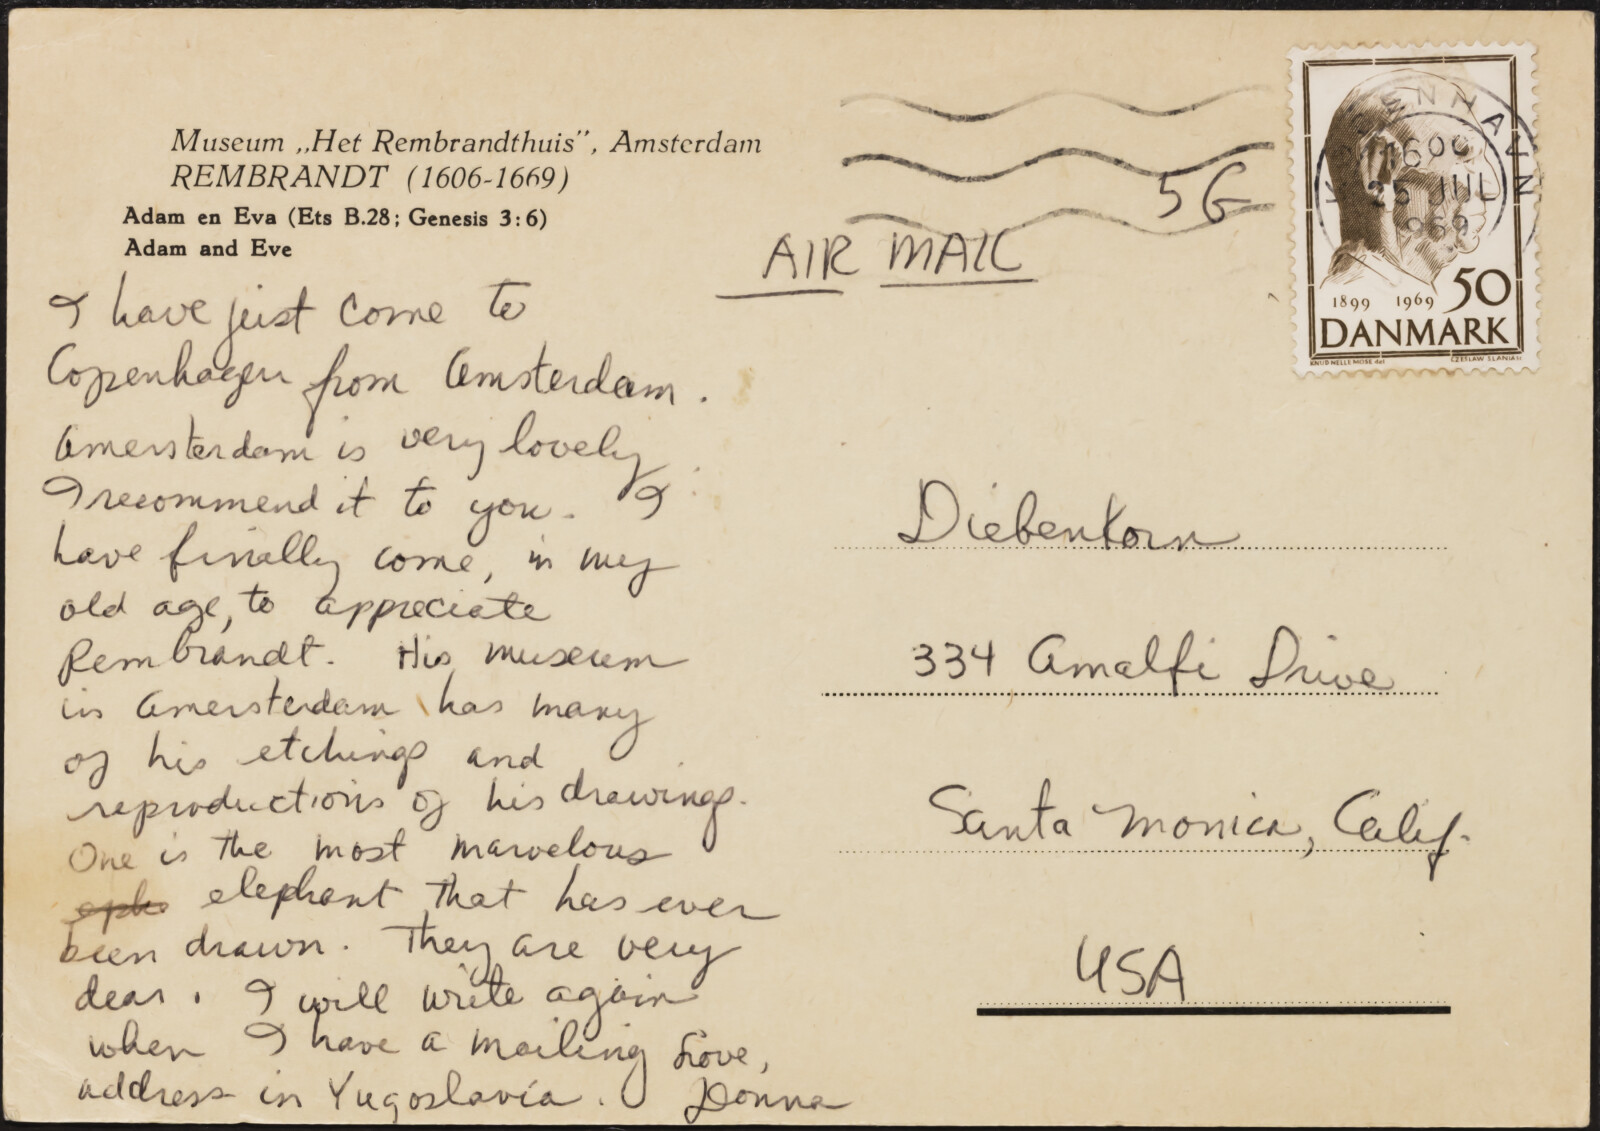 Museum „Het Rembrandthuis”, Amsterdam
REMBRANDT (1606-1669)
Adam en Eva (Ets B.28; Genesis 3:6)
Adam and Eve
I have just come to
Copenhagen from Amsterdam.
Amersterdam is very lovely.
I recommend it to you. I
have finally come, in my
old age, to appreciate
Rembrandt. His museum
in Amersterdam has many
of his etchings and
reproductions of his drawings.
One is the most marvelous
elephant that has ever
been drawn. They are very
dear. I will write again
when I have a mailing
address in Yugoslavia.
Love,
Donna
AIR MAIL
5G
KØBENHAVN
16 00
25 JUL
1969
1899 1969 50
DANMARK
KNUD NELLEMOSE del
CZESLAW SLANIA sc
Diebenkorn
334 Amalfi Drive
Santa Monica, Calif.
USA